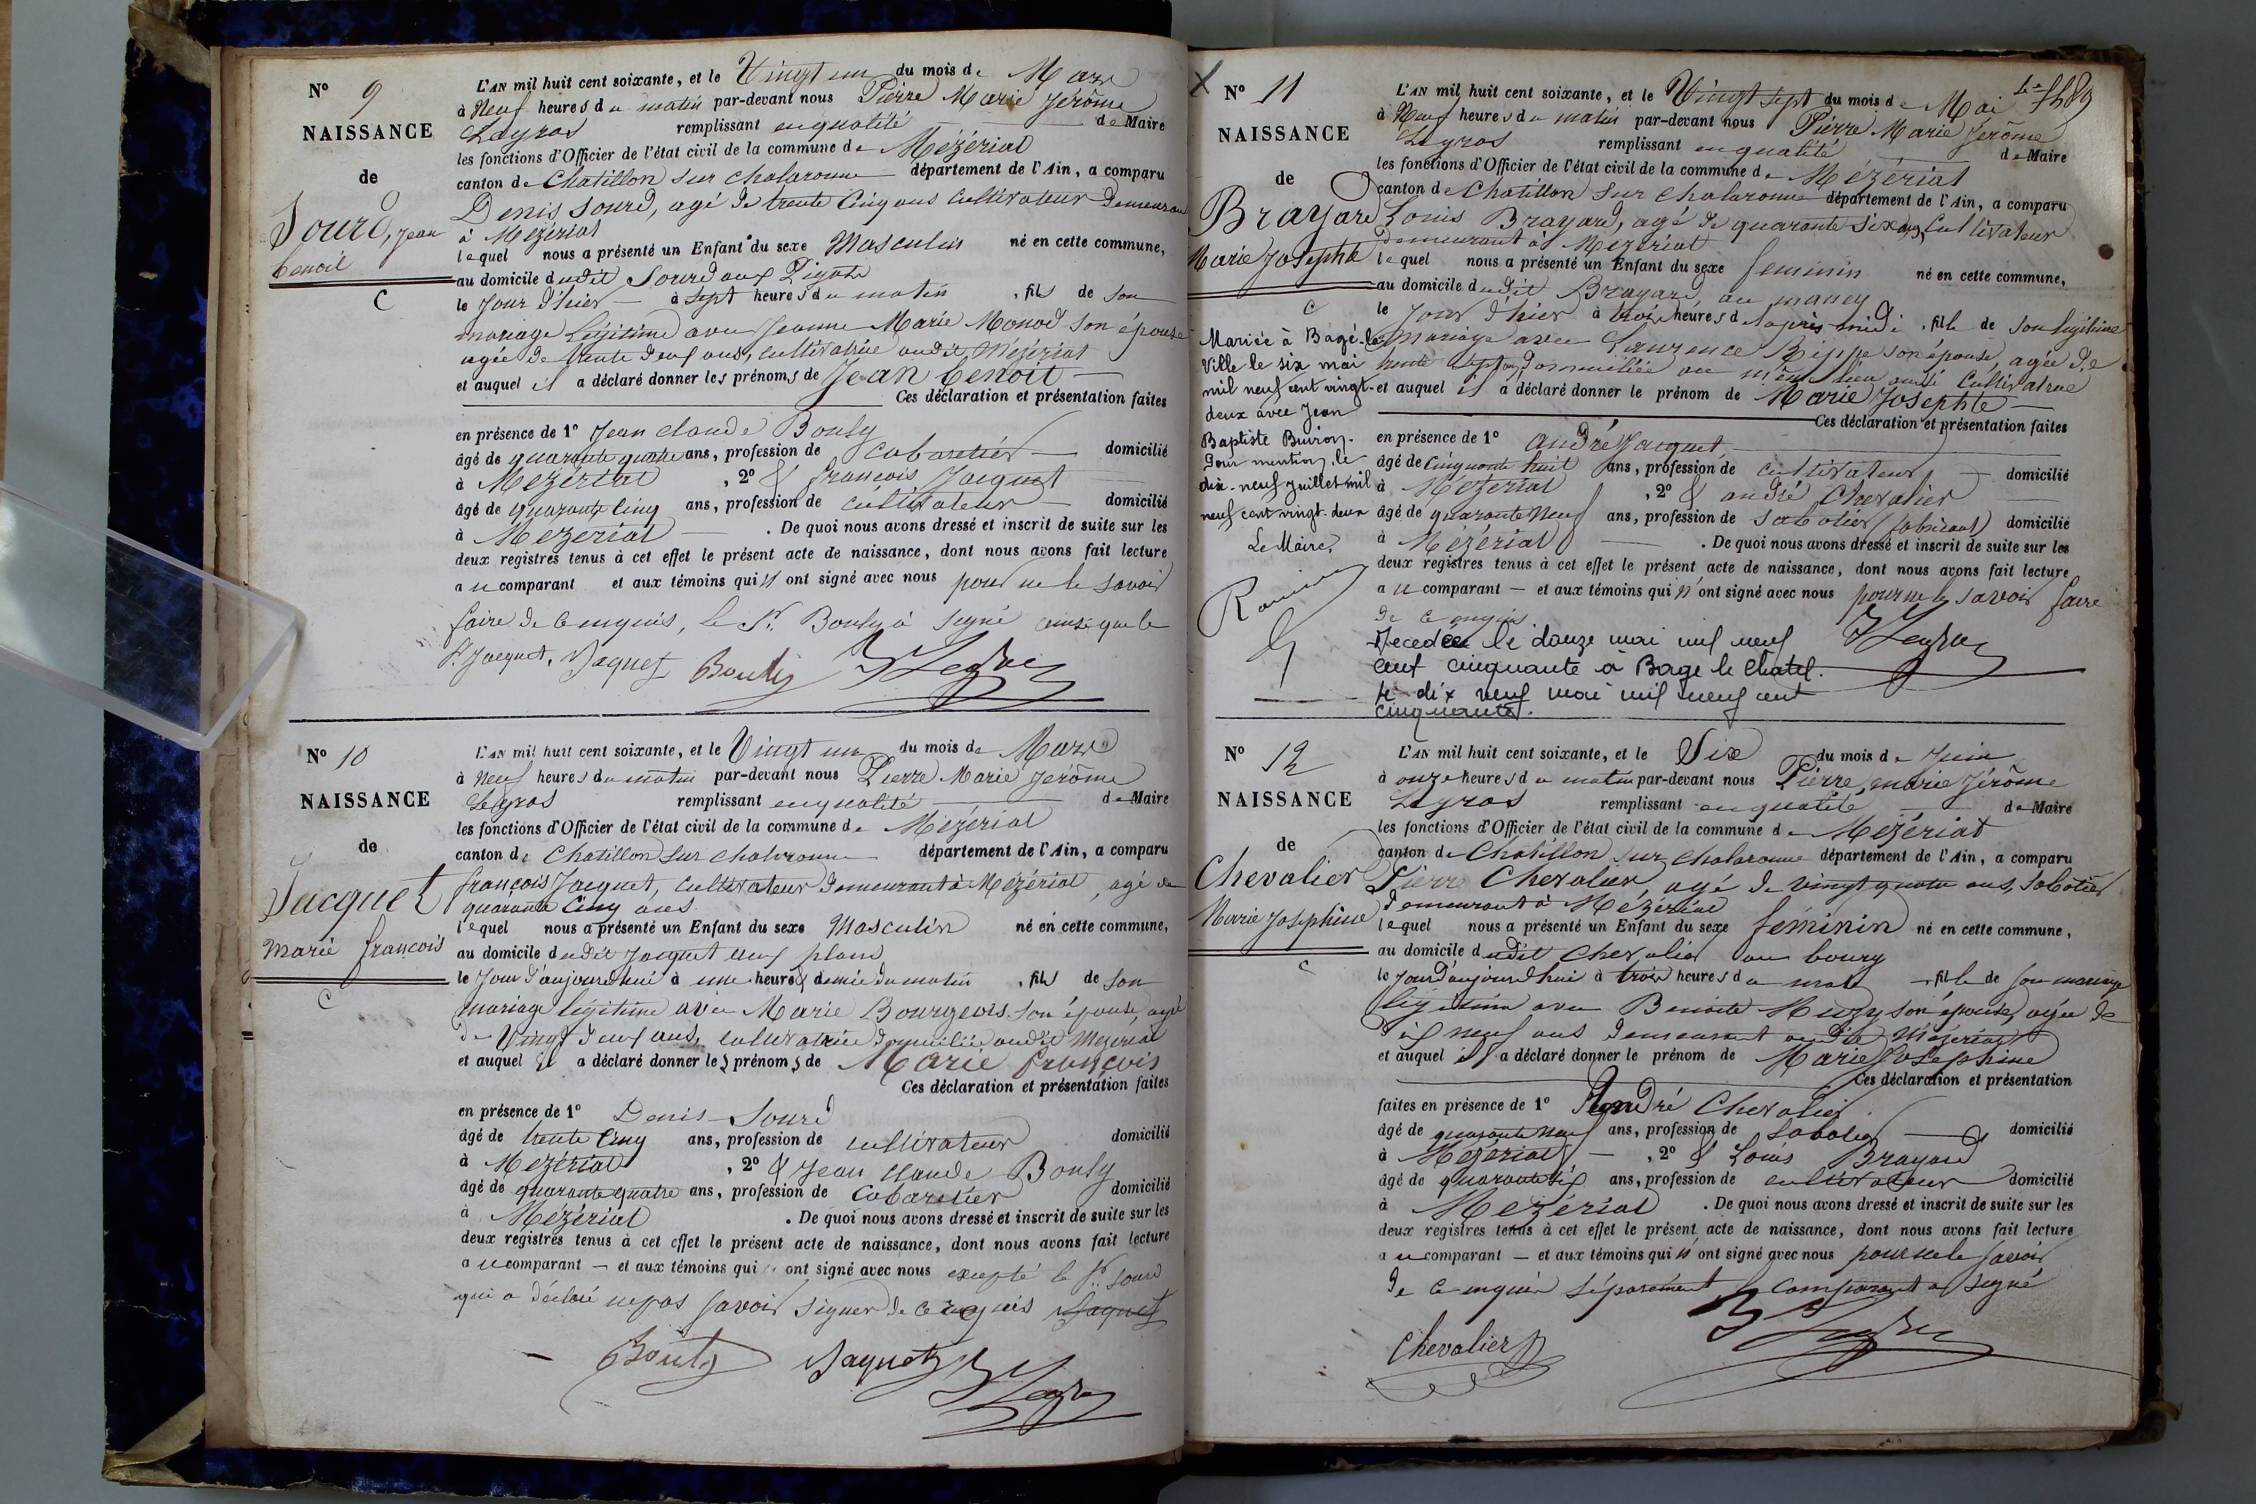 N° 9
NAISSANCE
de
Sourd, Jean
benoit
C
L'AN mil huit cent soixante, et le Vingt un du mois de Mars
à Neuf heures du matin par-devant nous Pierre Marie Jérôme
Legros remplissant en qualité de Maire
les fonctions d'Officier de l'état civil de la commune de Mézériat
canton de Chatillon sur chalaronne département de l'Ain, a comparu
Denis Sourd, agé de trente cinq ans Cultivateur Demeurant
à Mézériat
lequel nous a présenté un Enfant du sexe Masculin né en cette commune,
au domicile dudit Sourd aux
le Jour d'hier à sept heures du matin , fils de son
mariage légitime avec Jeanne Marie Monod son épouse
agée de trente deux ans, cultivatrice audit Mézériat
et auquel il a déclaré donner les prénoms de Jean benoit
Ces déclaration et présentation faites
en présence de 1° Jean claude Bouly
âgé de quarante quatre ans, profession de Cabaretier domicilié
à Mézériat , 2° & françois Jacquet
âgé de quarante cinq ans, profession de cultivateur domicilié
à Mézériat . De quoi nous avons dressé et inscrit de suite sur les
deux registres tenus à cet effet le présent acte de naissance, dont nous avons fait lecture
au comparant et aux témoins qui n'ont signé avec nous pour ne le savoir
faire de ce enquis, le Sr. Bouly a signé ainsi que le
Sr Jacquet. Jaquet Bouly Legros
N° 10
NAISSANCE
de
Jacquet
Marie françois
C
L'AN mil huit cent soixante, et le Vingt un du mois de Mars
à Neuf heures du matin par-devant nous Pierre Marie Jérôme
Legros remplissant en qualité de Maire
les fonctions d'Officier de l'état civil de la commune de Mézériat
canton de Chatillon sur chalaronne département de l'Ain, a comparu
françois Jacquet, Cultivateur Demeurant à Mézériat, agé de
quarante Cinq ans
lequel nous a présenté un Enfant du sexe Masculin né en cette commune,
au domicile dudit Jacquet
le Jour d'aujourd'hui à une heure & demie du matin , fils de son
mariage légitime avec Marie Bourgeois son épouse, agée
de Vingt deux ans, cultivatrice Domiciliée audit Mézériat
et auquel il a déclaré donner les prénoms de Marie françois
Ces déclaration et présentation faites
en présence de 1° Denis Sourd
âgé de trente Cinq ans, profession de cultivateur domicilié
à Mézériat , 2° & Jean claude Bouly
âgé de quarante quatre ans, profession de Cabaretier domicilié
à Mézériat . De quoi nous avons dressé et inscrit de suite sur les
deux registres tenus à cet effet le présent acte de naissance, dont nous avons fait lecture
au comparant — et aux témoins qui ont signé avec nous excepté le Sr. Sourd
qui a déclaré ne pas savoir signer de ce enquis Jaquet
Bouly Jaquet Legros
N° 11
NAISSANCE
de
Brayard
Marie Josephte
C
Mariée à Bagé-la-
Ville le six mai
mil neuf cent vingt-
deux avec Jean
Baptiste Buiron.
Pour mention, le
dix-neuf Juillet mil
neuf cent vingt-deux
Le Maire,
L'AN mil huit cent soixante, et le Vingt sept du mois de Mai
à Neuf heures du matin par-devant nous Pierre Marie Jérôme
Legros remplissant en qualité de Maire
les fonctions d'Officier de l'état civil de la commune de Mézériat
canton de Chatillon sur chalaronne département de l'Ain, a comparu
Louis Brayard, agé de quarante six ans, Cultivateur
demeurant à Mézériat
lequel nous a présenté un Enfant du sexe feminin né en cette commune,
au domicile dudit Brayard, au
le Jour d'hier à trois heures de l'après-midi , fille de son légitime
mariage avec Laurence Rippe son épouse, agée de
trente sept ans Domiciliée au même lieu audit Cultivatrice
et auquel il a déclaré donner le prénom de Marie Josephte
Ces déclaration et présentation faites
en présence de 1° andré Jacquet
âgé de Cinquante huit ans, profession de cultivateur domicilié
à Mézériat , 2° & andré Chevalier
âgé de quarante neuf ans, profession de sabotier (fabricant) domicilié
à Mézériat . De quoi nous avons dressé et inscrit de suite sur les
deux registres tenus à cet effet le présent acte de naissance, dont nous avons fait lecture
au comparant — et aux témoins qui n'ont signé avec nous pour ne le savoir faire
de ce enquis
Legros
Decedée le douze mai mil neuf
cent cinquante à Bage le Chatel.
le dix neuf mai mil neuf cent
cinquante.
N° 12
NAISSANCE
de
Chevalier
Marie Josephine
C
L'AN mil huit cent soixante, et le Six du mois de Juin
à onze heures du matin par-devant nous Pierre, marie Jérôme
Legros remplissant en qualité de Maire
les fonctions d'Officier de l'état civil de la commune de Mézériat
canton de Chatillon sur chalaronne département de l'Ain, a comparu
Pierre Chevalier, agé de vingt quatre ans, Sabotier
demeurant à Mézériat
lequel nous a présenté un Enfant du sexe féminin né en cette commune,
au domicile dudit Chevalier au bourg
le Jour d'aujourd'hui à trois heures du matin , fille de son mariage
légitime avec Benoite son épouse, agée de
dix neuf ans demeurant audit Mézériat
et auquel il a déclaré donner le prénom de Marie Josephine
Ces déclaration et présentation
faites en présence de 1° André Chevalier
âgé de quarante neuf ans, profession de Sabotier domicilié
à Mézériat — , 2° & Louis Brayard
âgé de quarante six ans, profession de cultivateur domicilié
à Mézériat . De quoi nous avons dressé et inscrit de suite sur les
deux registres tenus à cet effet le présent acte de naissance, dont nous avons fait lecture
au comparant — et aux témoins qui n'ont signé avec nous pour ne le savoir
de ce enquis séparément le comparant a signé
Chevalier Legros